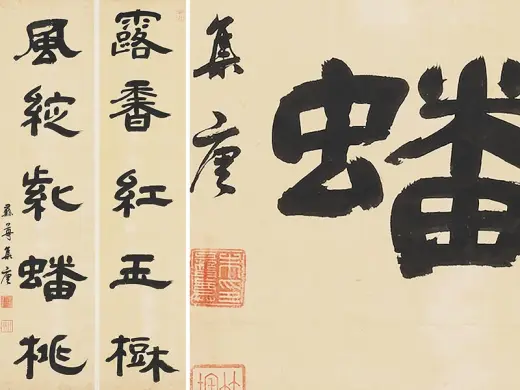 露香紅玉樹
風綻紫蟠桃
彝尊集唐
集唐
蟠